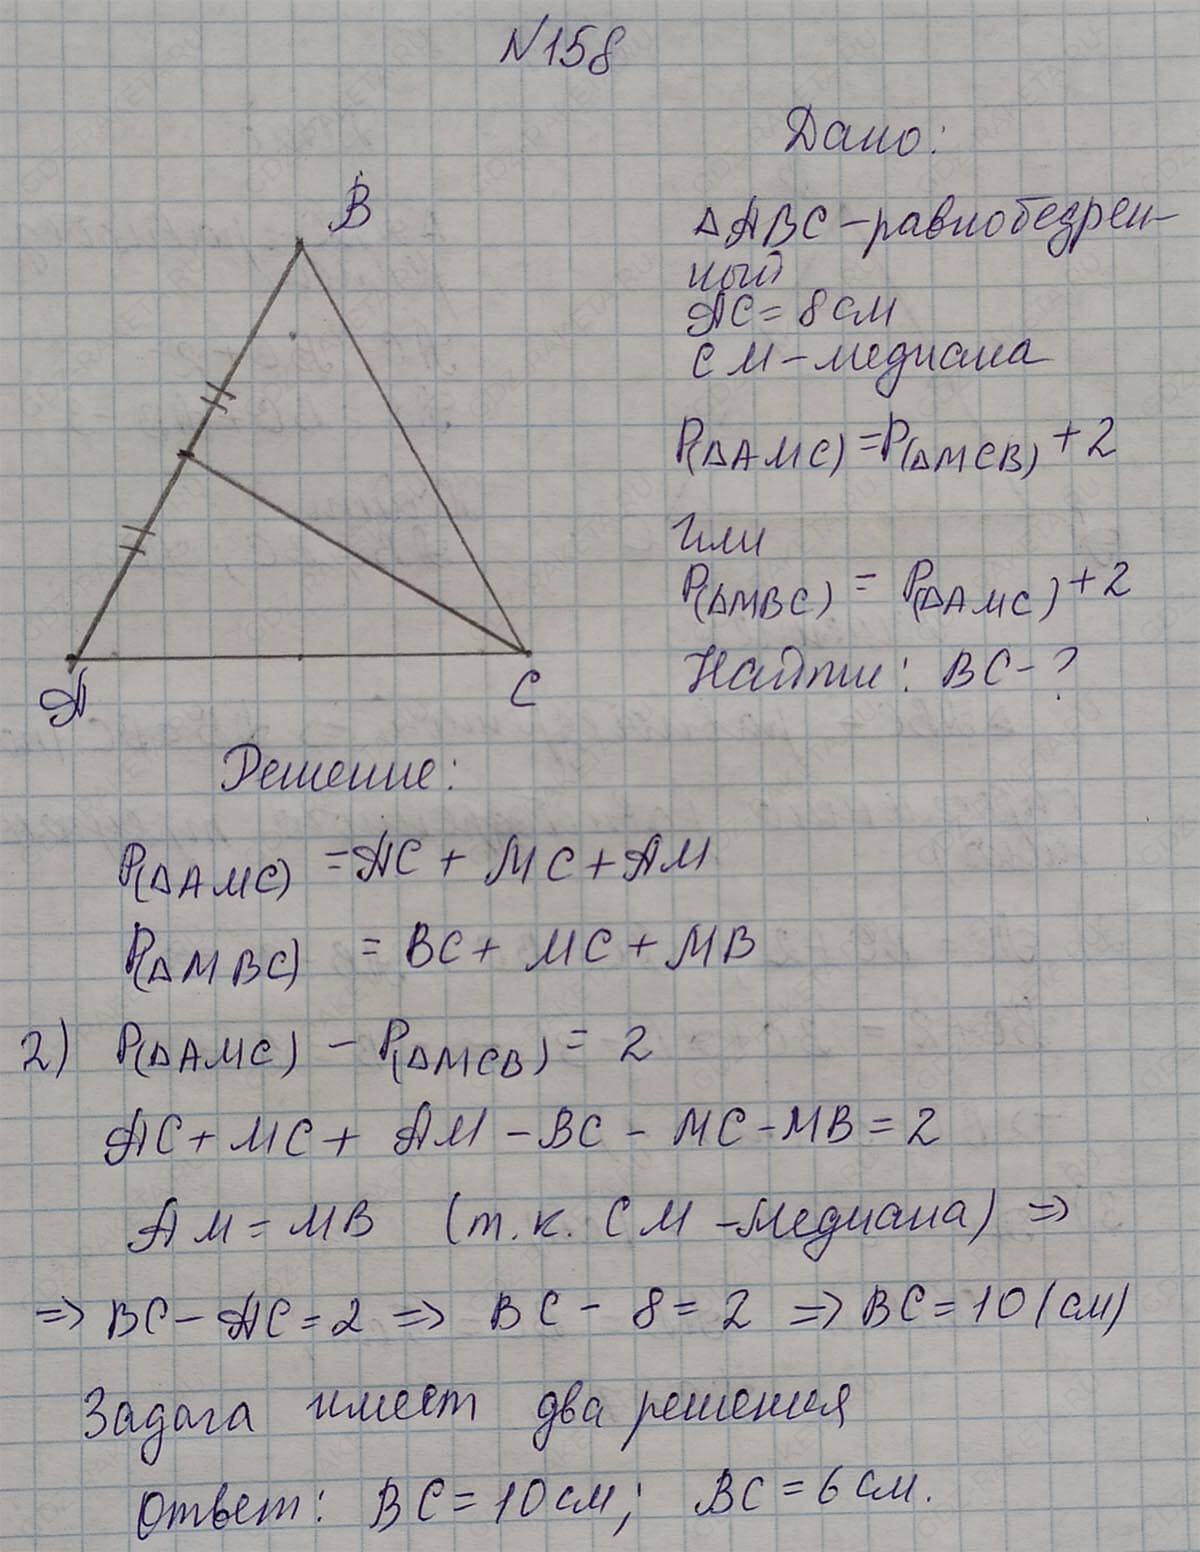 N158
B
A
C
Дано:
△ABC-равнобедрен-
ный
AC=8см
CM-медиана
P(△AMC)=P(△MCB)+2
Или
P(△MBC)=P(△AMC)+2
Найти: BC-?
Решение:
P(△AMC)=AC+MC+AM
P(△MBC)=BC+MC+MB
2) P(△AMC)-P(△MCB)=2
AC+MC+AM-BC-MC-MB=2
AM=MB (т.к. CM-Медиана) =>
=> BC-AC=2 => BC-8=2 => BC=10(см)
Задача имеет два решения
Ответ: BC=10см; BC=6см.